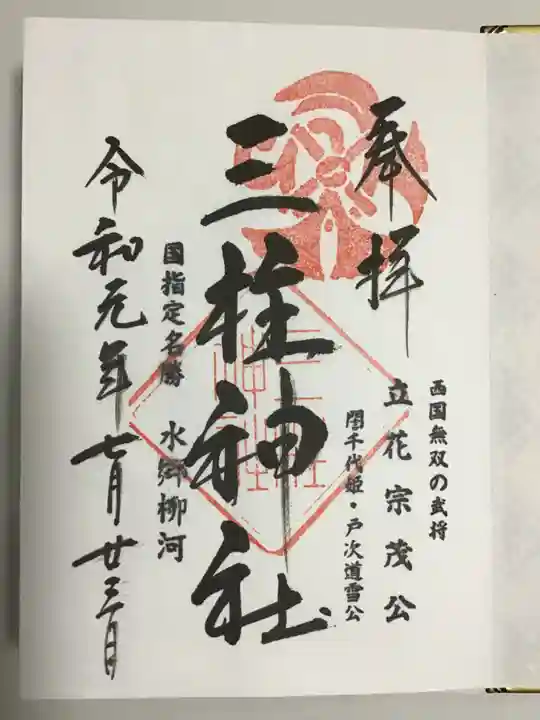 奉拝
西国無双の武将
立花宗茂公
誾千代姫・戸次道雪公
三柱神社
水郷柳河
国指定名勝
令和元年七月廿三日